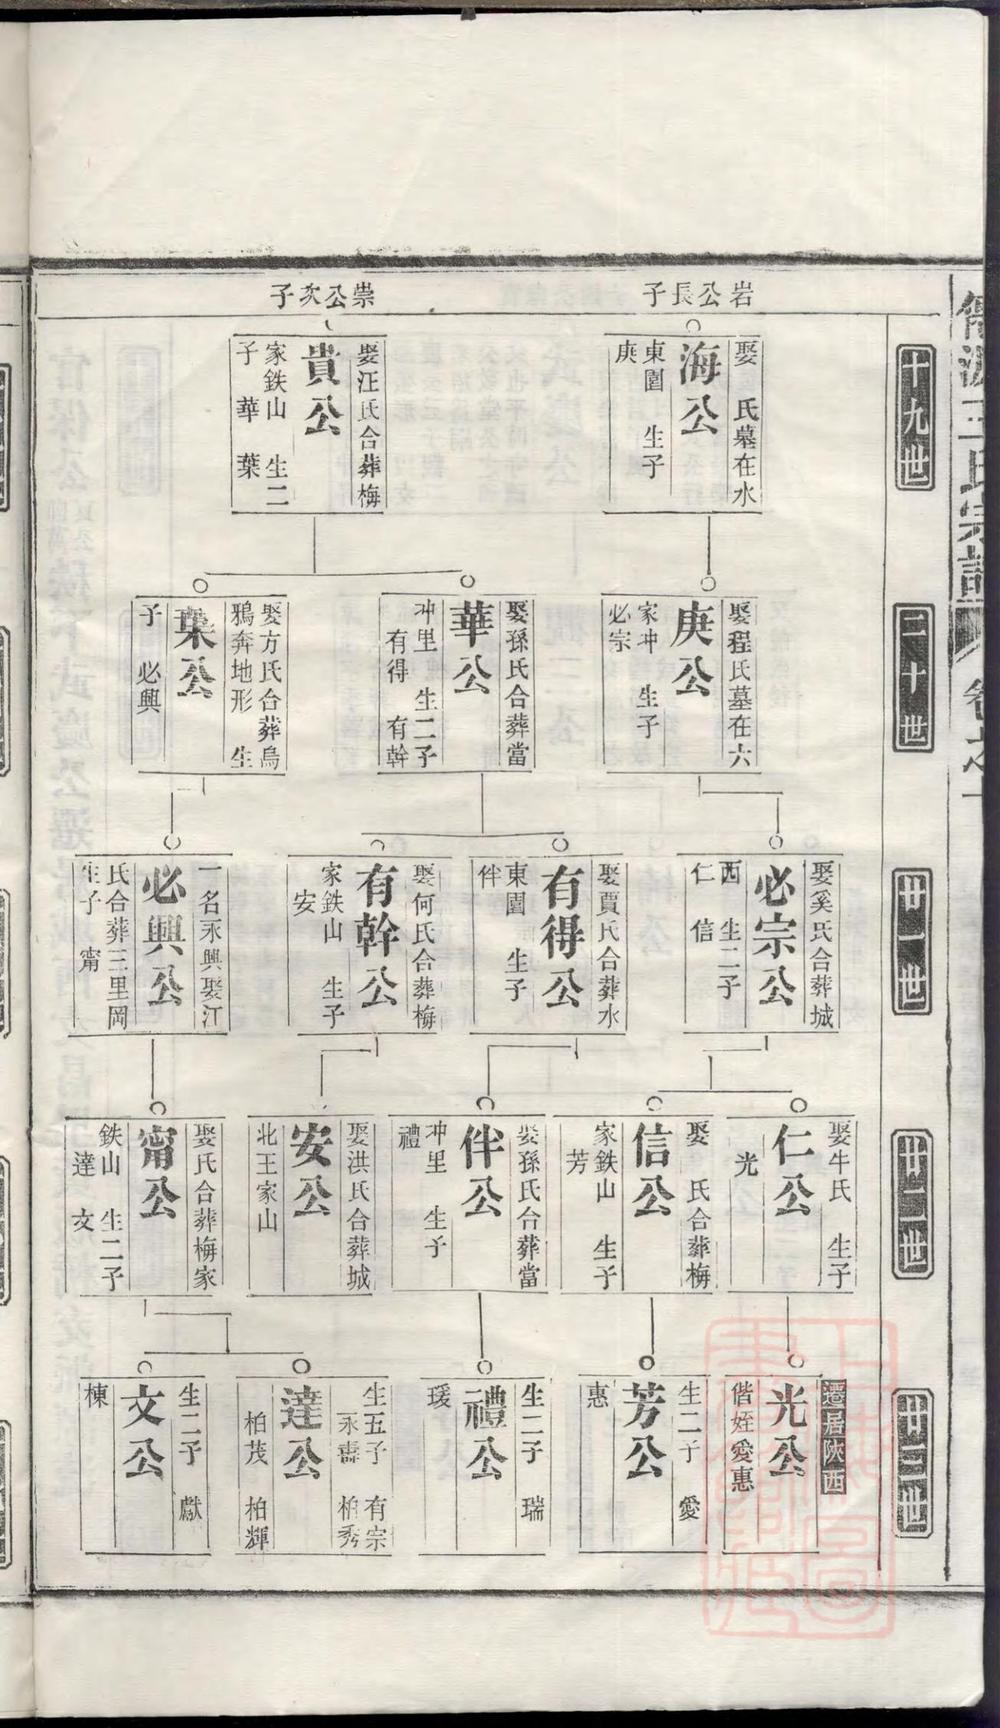 王氏宗譜
卷之十
十九世
岩公長子
海公
娶　氏墓在水
東園　生子
庚
崇公次子
貴公
娶汪氏合葬梅
家鉄山　生二
子　華　葉
二十世
庚公
娶程氏墓在六
家冲　生子
必宗
華公
娶孫氏合葬當
冲里　生二子
有得　有幹
葉公
娶方氏合葬烏
鴉奔地形　生
子　必興
廿一世
必宗公
娶奚氏合葬城
西　生二子
仁　信
有得公
娶賈氏合葬水
東園　生子
伴
有幹公
娶何氏合葬梅
家鉄山　生子
安
必興公
一名永興娶江
氏合葬三里岡
生子　甯
廿二世
仁公
娶牛氏　生子
光
信公
娶　氏合葬梅
家鉄山　生子
芳
伴公
娶孫氏合葬當
冲里　生子
禮
安公
娶洪氏合葬城
北王家山
甯公
娶氏合葬梅家
鉄山　生二子
達　文
廿三世
光公
遷居陝西
偕姪愛惠
芳公
生二子　愛
惠
禮公
生二子　瑞
瑗
達公
生五子　有宗
永壽　柏秀
柏茂　柏輝
文公
生二子　獻
棟